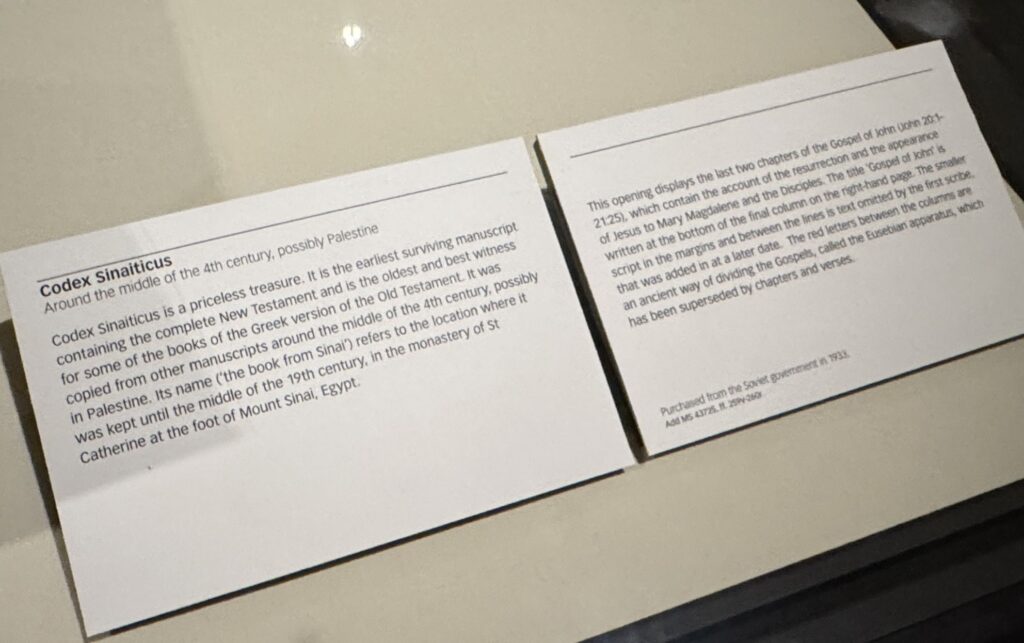 Codex Sinaiticus
Around the middle of the 4th century, possibly Palestine
Codex Sinaiticus is a priceless treasure. It is the earliest surviving manuscript
containing the complete New Testament and is the oldest and best witness
for some of the books of the Greek version of the Old Testament. It was
copied from other manuscripts around the middle of the 4th century, possibly
in Palestine. Its name ('the book from Sinai') refers to the location where it
was kept until the middle of the 19th century, in the monastery of St
Catherine at the foot of Mount Sinai, Egypt.
This opening displays the last two chapters of the Gospel of John (John 20:1-
21:25), which contain the account of the resurrection and the appearance
of Jesus to Mary Magdalene and the Disciples. The title 'Gospel of John' is
written at the bottom of the final column on the right-hand page. The smaller
script in the margins and between the lines is text omitted by the first scribe,
that was added in at a later date. The red letters between the columns are
an ancient way of dividing the Gospels, called the Eusebian apparatus, which
has been superseded by chapters and verses.
Purchased from the Soviet government in 1933.
Add MS 43725, ff. 259v-260r